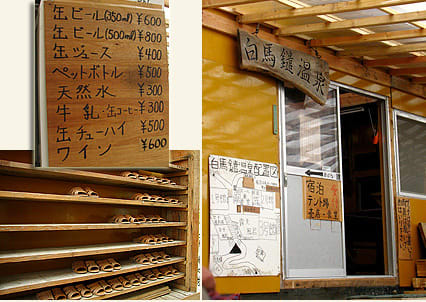 缶ビール(350ml) ¥600
缶ビール(500ml) ¥800
缶ジュース ¥400
ペットボトル ¥500
天然水 ¥300
牛乳・缶コーヒー ¥300
缶チューハイ ¥500
ワイン ¥600
白馬鑓温泉
白馬鑓温泉配置図
宿泊
テント場
売店・食堂